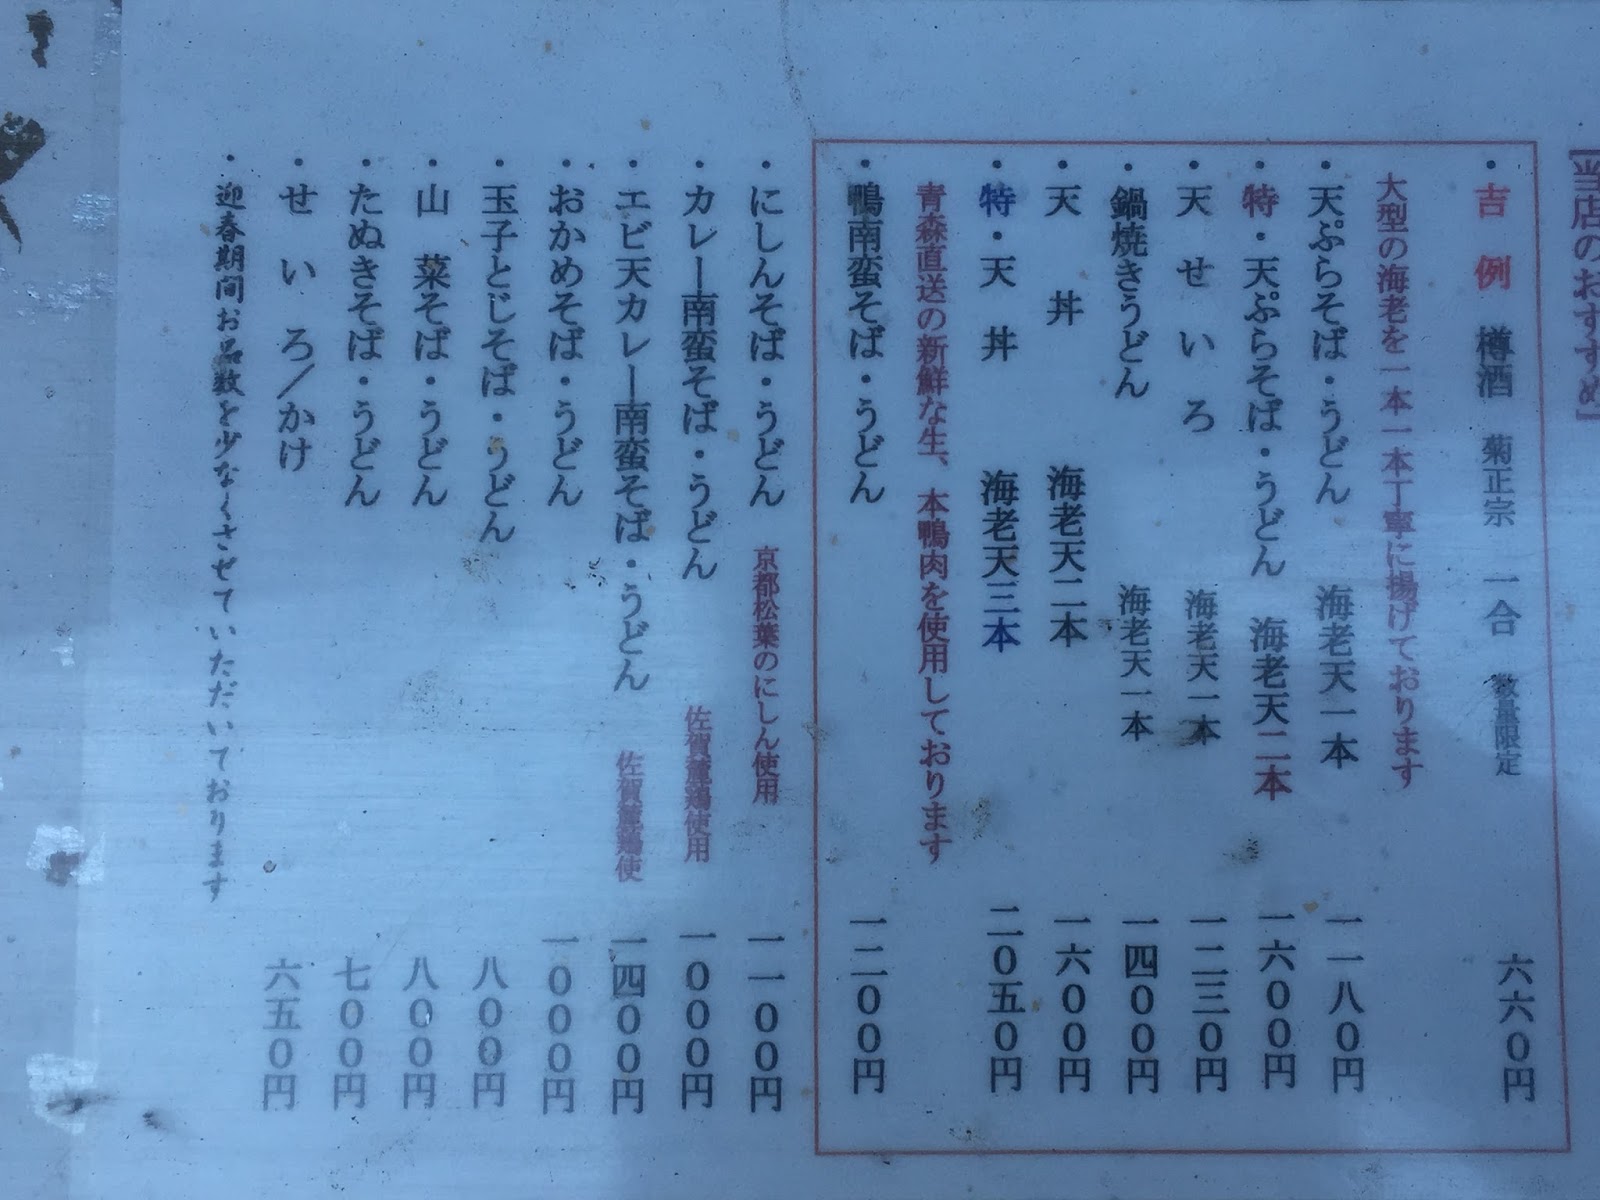 【当店のおすすめ】
・吉例 樽酒 菊正宗 一合 数量限定 六六〇円
大型の海老を一本一本丁寧に揚げております
・天ぷらそば・うどん 海老天一本 一一八〇円
・特・天ぷらそば・うどん 海老天二本 一六〇〇円
・天せいろ 海老天一本 一二三〇円
・鍋焼きうどん 海老天一本 一四〇〇円
・天丼 海老天二本 一六〇〇円
・特・天丼 海老天三本 二〇五〇円
青森直送の新鮮な生、本鴨肉を使用しております
・鴨南蛮そば・うどん 一二〇〇円
・にしんそば・うどん 京都松葉のにしん使用 一一〇〇円
・カレー南蛮そば・うどん 佐賀麓鶏使用 一〇〇〇円
・エビ天カレー南蛮そば・うどん 佐賀麓鶏使 一四〇〇円
・おかめそば・うどん 一〇〇〇円
・玉子とじそば・うどん 八〇〇円
・山菜そば・うどん 八〇〇円
・たぬきそば・うどん 七〇〇円
・せいろ/かけ 六五〇円
・迎春期間お品数を少なくさせていただいております